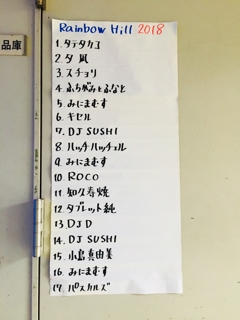 品庫
Rainbow Hill 2018
1. タテタカコ
2. 夕凪
3. スチョリ
4. ふちがみとふなと
5. みにまむす
6. キセル
7. DJ SUSHI
8. ハッチハッチェル
9. みにまむす
10. ROCO
11. 知久寿焼
12. タブレット純
13. DJ D
14. DJ SUSHI
15. 小島真由美
16. みにまむす
17. パスカルズ